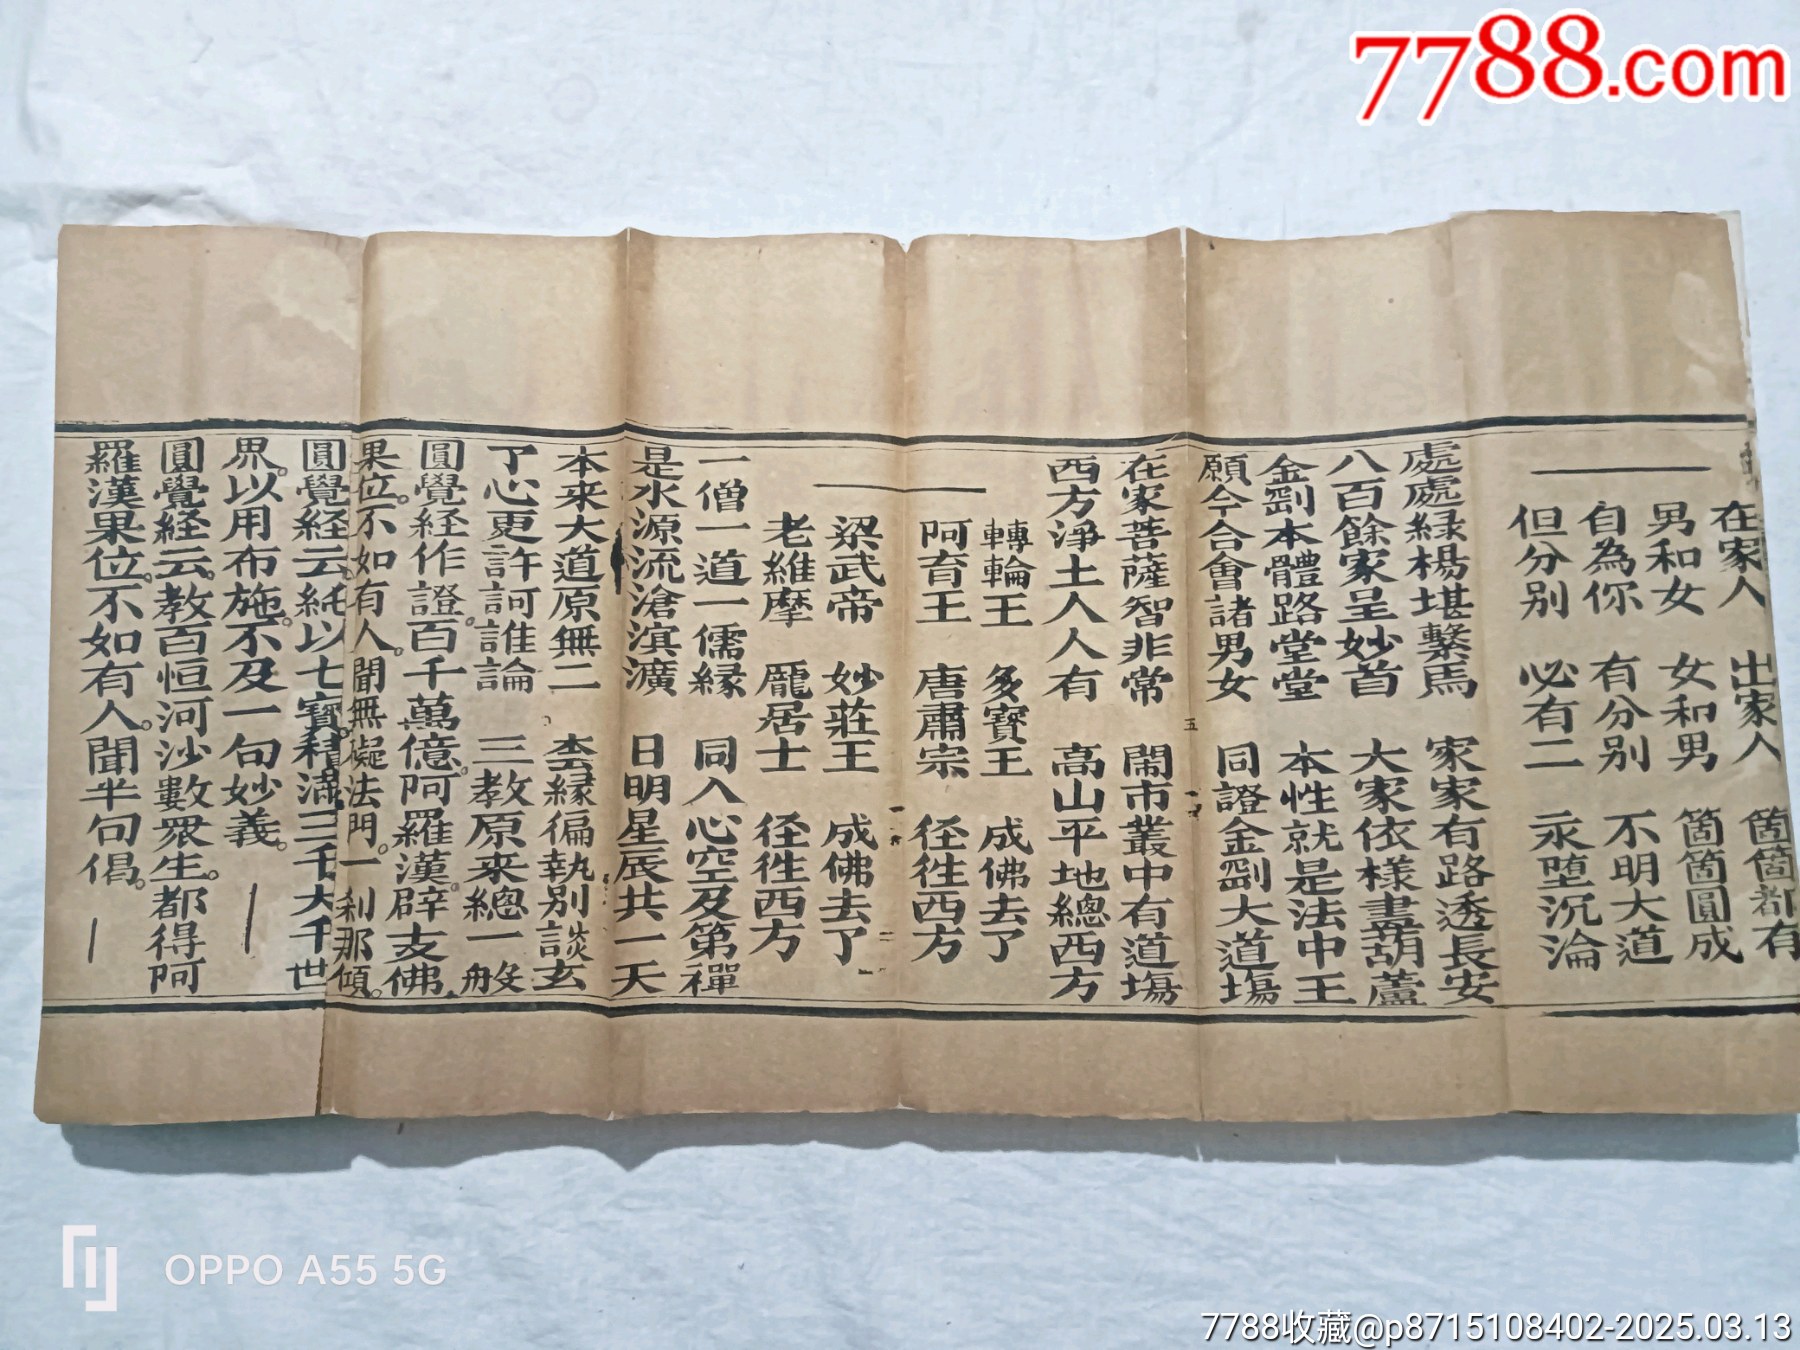 7788.com
在家人　出家人　箇箇都有
男和女　女和男　箇箇圓成
自為你　有分别　不明大道
但分别　必有二　永堕沉淪
處處緑楊堪繫馬　家家有路透長安
八百餘家呈妙首　大家依樣畫葫蘆
金剛本體路堂堂　本性就是法中王
願今合會諸男女　同證金剛大道塲
在家菩薩智非常　鬧市叢中有道塲
西方淨土人人有　高山平地總西方
轉輪王　多寶王　成佛去了
阿育王　唐肅宗　径徃西方
梁武帝　妙莊王　成佛去了
老維摩　龎居士　径徃西方
一僧一道一儒縁　同入心空及第禪
是水源流滄溟瀇　日明星辰共一天
本来大道原無二　枩縁偏執别談玄
了心更許訶誰論　三教原来總一般
圓覺経作證。百千萬億。阿羅漢。辟支佛。
果位。不如有人。聞無礙法門。一刹那傾。
圓覺経云。純以七寶。積滿三千大千世
界。以用布施。不及一句妙義。
圓覺経云。教百恒河沙數眾生。都得阿
羅漢果位。不如有人。聞半句偈。
五
OPPO A55 5G
7788收藏@p8715108402-2025.03.13